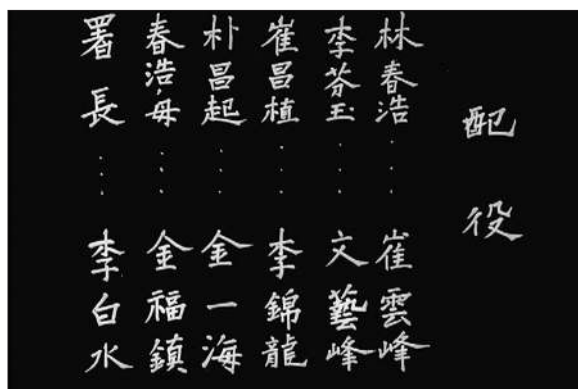 配役
林春浩・・・崔雲峰
李芬玉・・・文藝峰
崔昌植・・・李錦龍
朴昌起・・・金一海
春浩母・・・金福鎮
署長・・・李白水